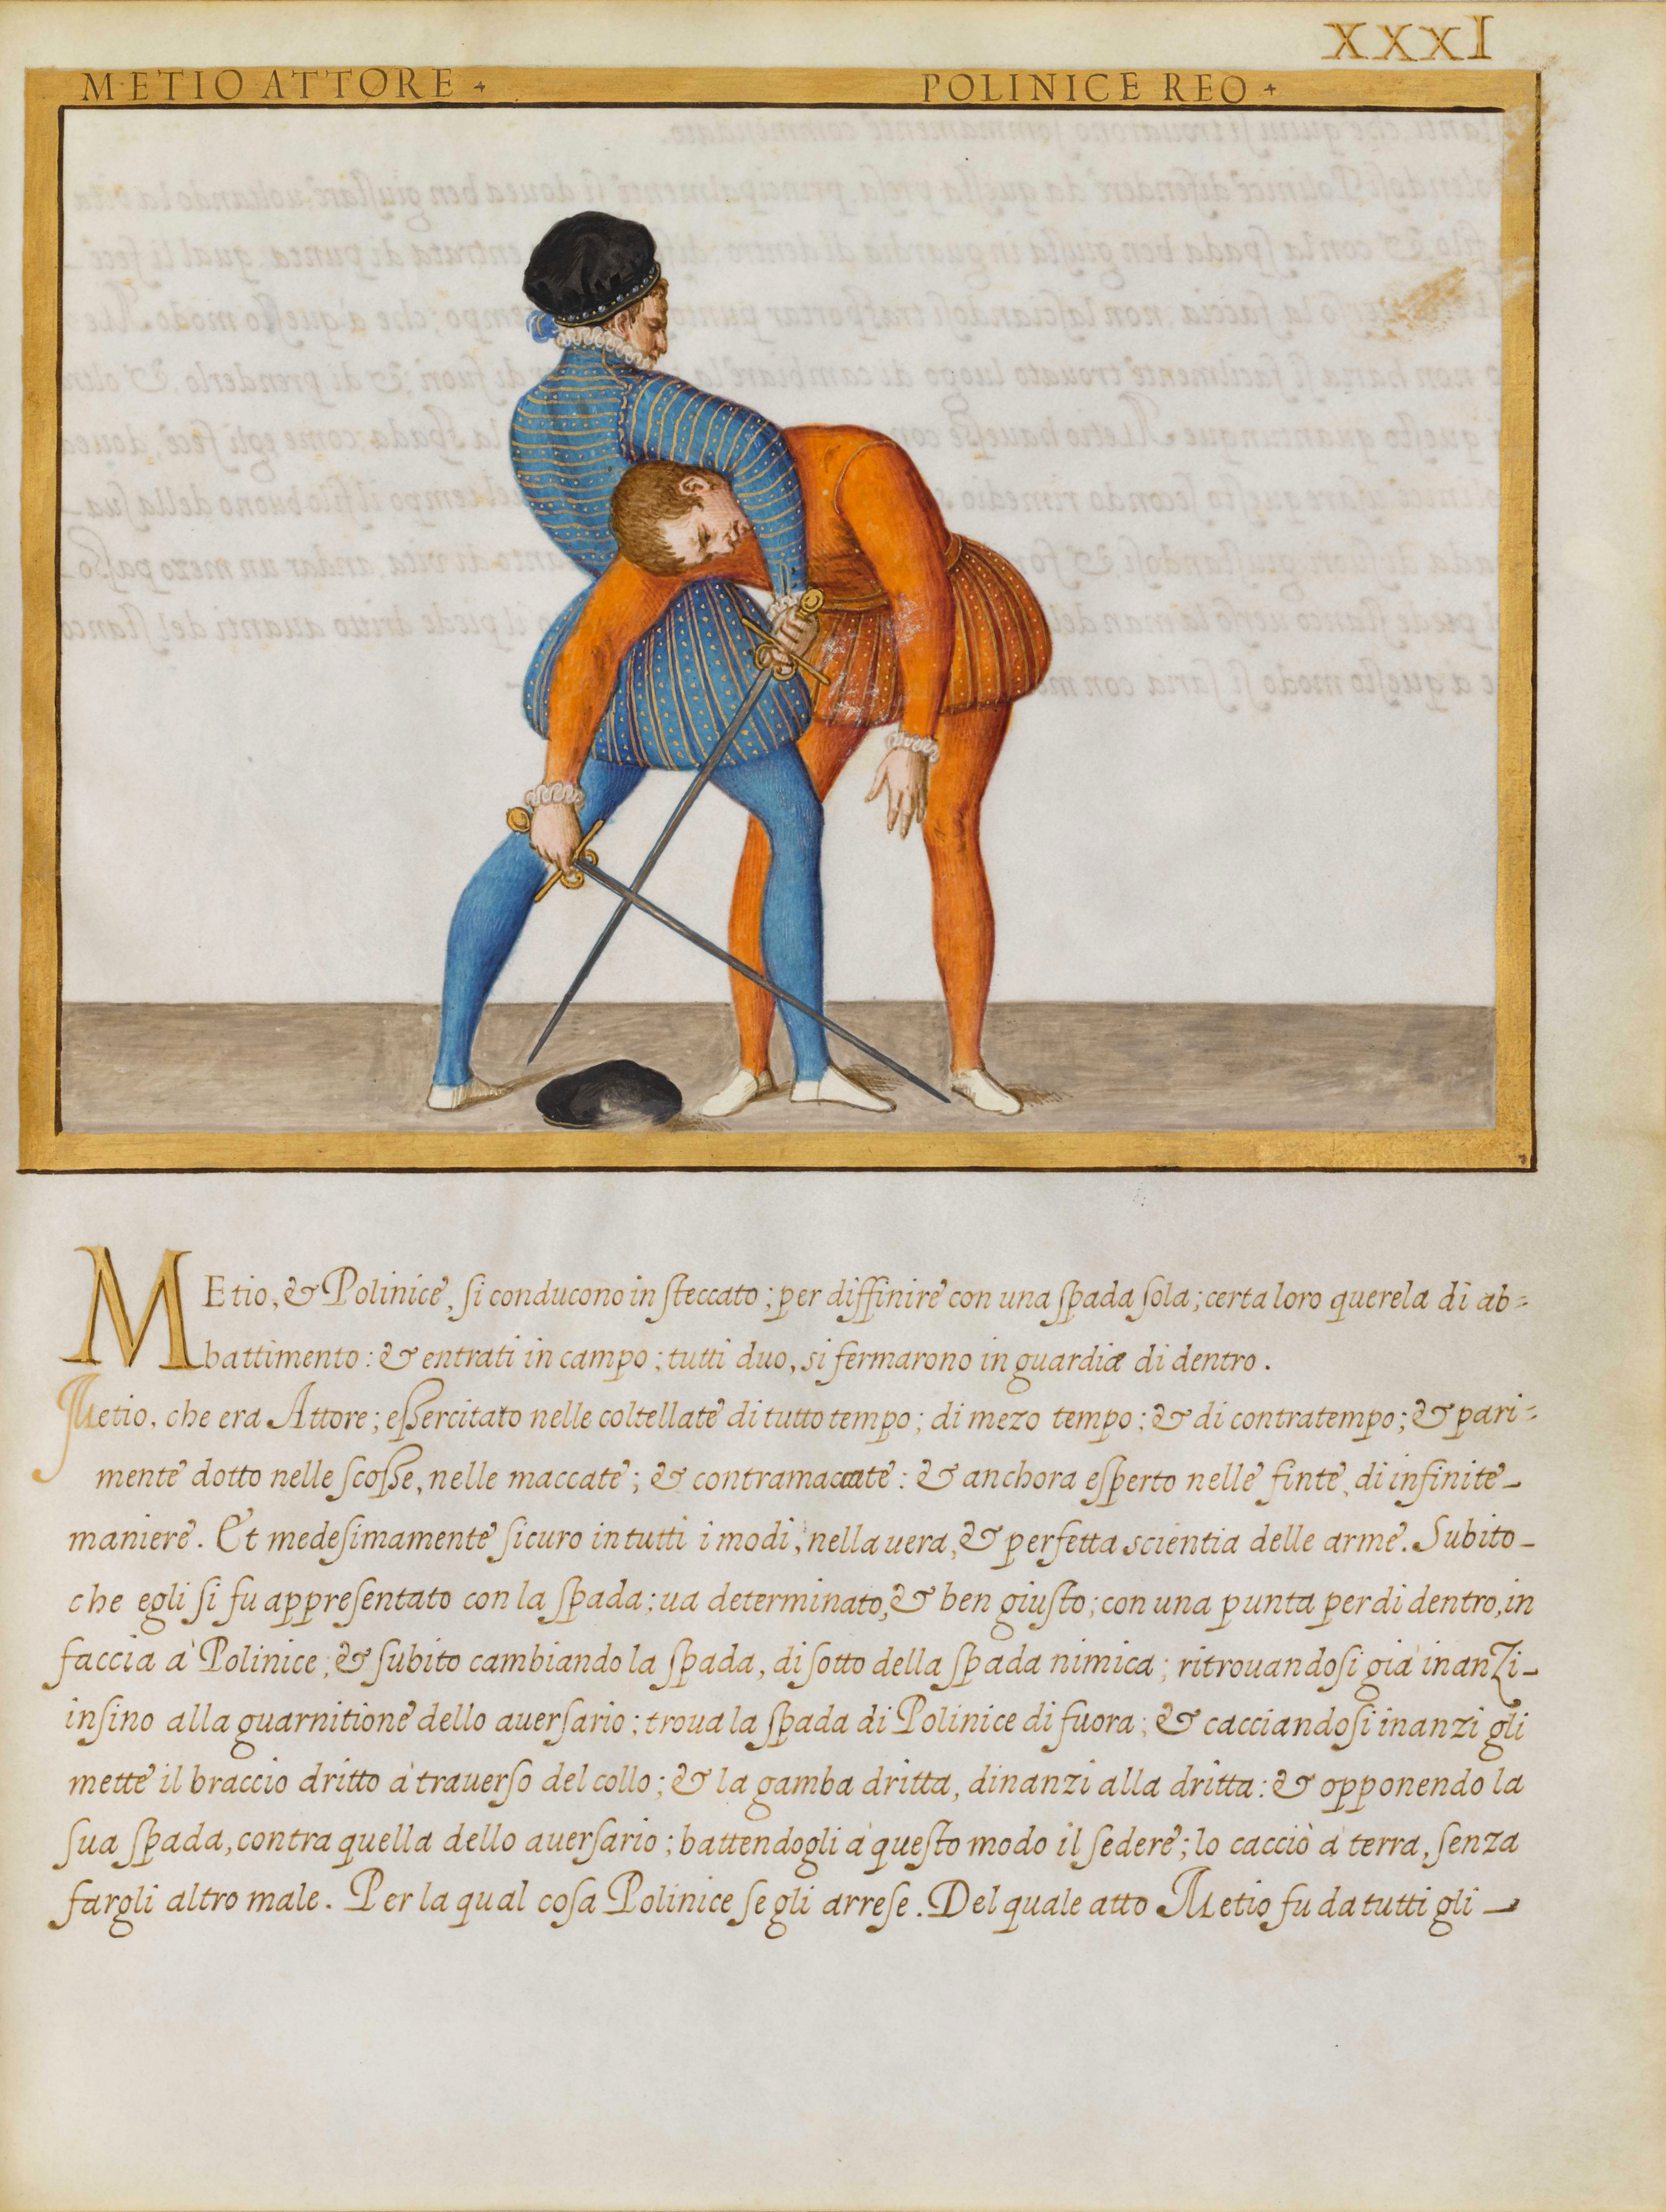 XXXI
METIO ATTORE + POLINICE REO +
MEtio, & Polinice, si conducono in steccato; per diffinire con una spada sola; certa loro querela di ab=
battimento: & entrati in campo; tutti duo, si fermarono in guardia di dentro.
Metio, che era Attore; essercitato nelle coltellate di tutto tempo; di mezo tempo; & di contratempo; & pari=
mente dotto nelle scosse, nelle maccate; & contramaccate: & anchora esperto nelle finte, di infinite
maniere. Et medesimamente sicuro in tutti i modi, nella uera, & perfetta scientia delle arme. Subito
che egli si fu appresentato con la spada; ua determinato, & ben giusto; con una punta per di dentro, in
faccia à Polinice; & subito cambiando la spada, di sotto della spada nimica; ritrouandosi già inanzi
insino alla guarnitione dello auersario; troua la spada di Polinice di fuora; & cacciandosi inanzi gli
mette il braccio dritto à trauerso del collo; & la gamba dritta, dinanzi alla dritta: & opponendo la
sua spada, contra quella dello auersario; battendogli à questo modo il sedere; lo cacciò à terra, senza
fargli altro male. Per la qual cosa Polinice se gli arrese. Del quale atto Metio fu da tutti gli